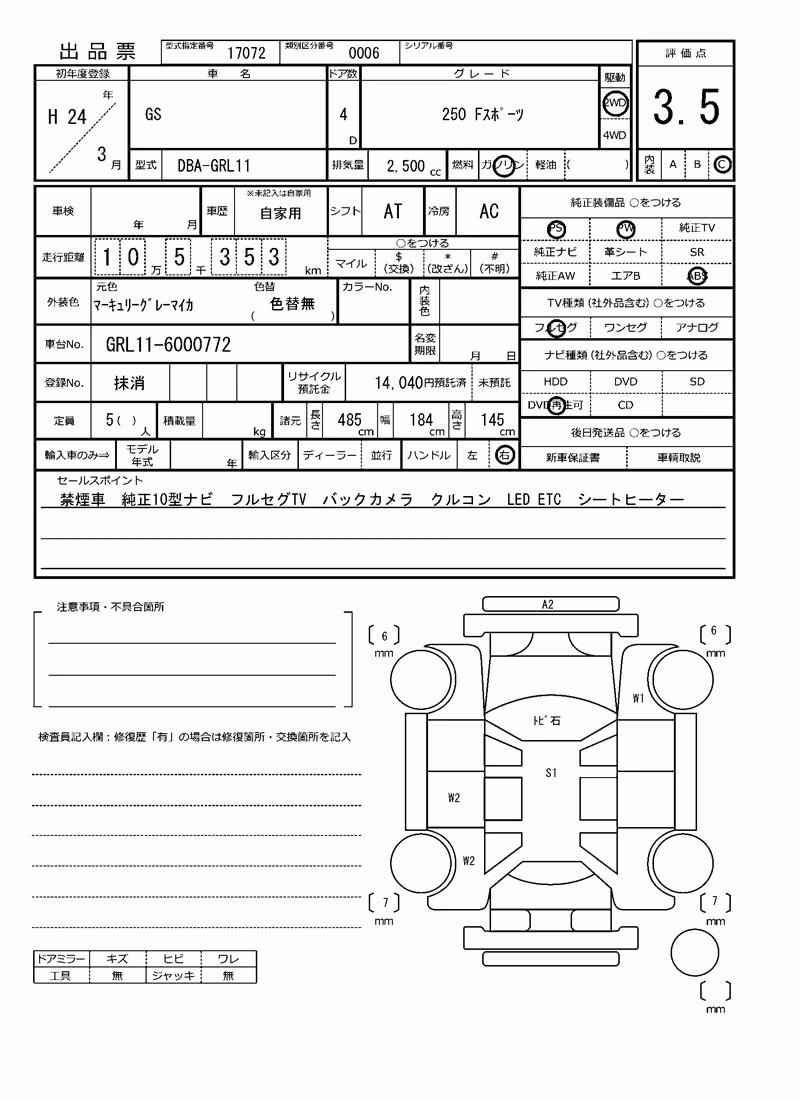 出品票 型式指定番号 17072 類別区分番号 0006 シリアル番号
評価点
初年度登録 車名 ドア数 グレード 駆動
H 24 年 3 月 GS 4 D 250 Fｽﾎﾟｰﾂ 2WD 4WD
3.5
型式 DBA-GRL11 排気量 2,500 cc 燃料 ガソリン 軽油 ( )
内装 A B C
車検 年 月 車歴 ※未記入は自家用 自家用 シフト AT 冷房 AC
純正装備品 ○をつける
PS PW 純正TV
走行距離 10 万 5 千 353 km ○をつける
マイル $ (交換) * (改ざん) # (不明)
純正ナビ 革シート SR
純正AW エアB ABS
外装色 元色 ﾏｰｷｭﾘｰｸﾞﾚｰﾏｲｶ 色替 色替無 ( ) カラーNo. 内装色
TV種類 (社外品含む) ○をつける
フルセグ ワンセグ アナログ
車台No. GRL11-6000772 名変期限 月 日
ナビ種類 (社外品含む) ○をつける
登録No. 抹消 リサイクル預託金 14,040円預託済 未預託
HDD DVD SD
DVD再生可 CD
定員 5 ( ) 人 積載量 kg 諸元 長さ 485 cm 幅 184 cm 高さ 145 cm
後日発送品 ○をつける
輸入車のみ⇒ モデル年式 年 輸入区分 ディーラー 並行 ハンドル 左 右
新車保証書 車輌取説
セールスポイント
禁煙車 純正10型ナビ フルセグTV バックカメラ クルコン LED ETC シートヒーター
注意事項・不具合箇所
A2
6 mm
6 mm
W1
ﾄﾋﾞ石
検査員記入欄：修復歴「有」の場合は修復箇所・交換箇所を記入
S1
W2
W2
7 mm
7 mm
ドアミラー キズ ヒビ ワレ
工具 無 ジャッキ 無
mm